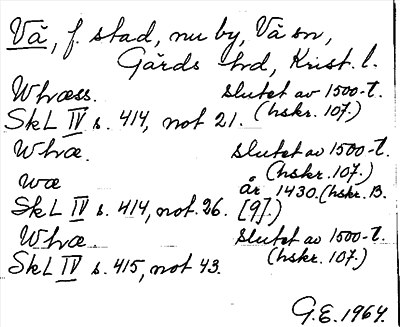 Vä, f. stad, nu by, Vä sn,
Gärds hd, Krist. l.
Whæss. slutet av 1500-t.
SkL IV s. 414, not 21. (hskr. 107.)
Whæ. slutet av 1500-t.
(hskr. 107.)
wæ år 1430. (hskr. B.
SkL IV s. 414, not. 26. [9].)
Whæ. slutet av 1500-t.
SkL IV s. 415, not 43. (hskr. 107.)
G.E. 1964.